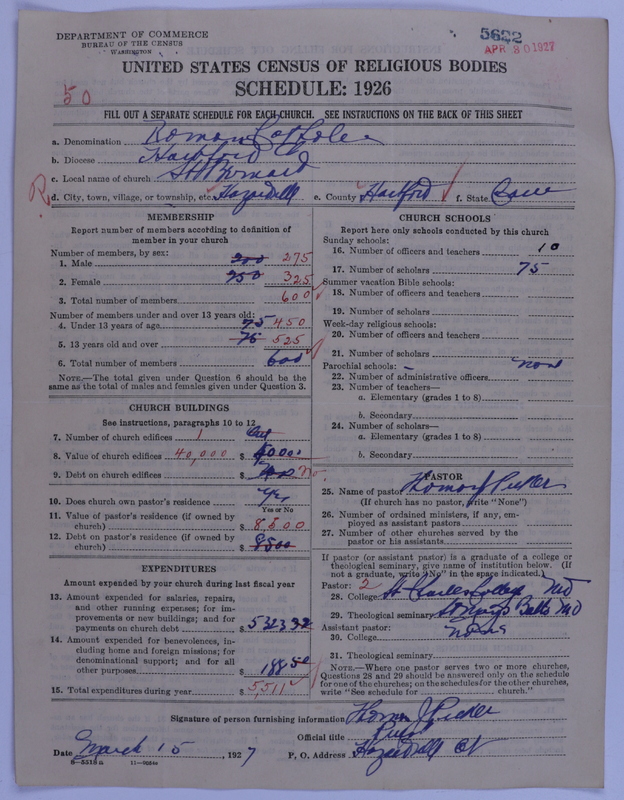 DEPARTMENT OF COMMERCE
BUREAU OF THE CENSUS
WASHINGTON
5622
APR 30 1927
UNITED STATES CENSUS OF RELIGIOUS BODIES
SCHEDULE: 1926
50
FILL OUT A SEPARATE SCHEDULE FOR EACH CHURCH. SEE INSTRUCTIONS ON THE BACK OF THIS SHEET
a. Denomination Roman Catholic
b. Diocese Hartford Ct
c. Local name of church St Bernard
d. City, town, village, or township, etc. Hazardville e. County Hartford f. State Conn
MEMBERSHIP
Report number of members according to definition of
member in your church
Number of members, by sex:
1. Male 275
2. Female 350 325
3. Total number of members 600
Number of members under and over 13 years old:
4. Under 13 years of age 75 450
5. 13 years old and over 75 525
6. Total number of members 600
NOTE.—The total given under Question 6 should be the
same as the total of males and females given under Question 3.
CHURCH BUILDINGS
See instructions, paragraphs 10 to 12
7. Number of church edifices 1
8. Value of church edifices 40,000 $
9. Debt on church edifices $ No
10. Does church own pastor's residence Yes
Yes or No
11. Value of pastor's residence (if owned by
church) $ 8500
12. Debt on pastor's residence (if owned by
church) $ 8500
EXPENDITURES
Amount expended by your church during last fiscal year
13. Amount expended for salaries, repairs,
and other running expenses; for im-
provements or new buildings; and for
payments on church debt $
14. Amount expended for benevolences, in-
cluding home and foreign missions; for
denominational support; and for all
other purposes $ 188 50
15. Total expenditures during year $ 5,511
CHURCH SCHOOLS
Report here only schools conducted by this church
Sunday schools:
16. Number of officers and teachers 10
17. Number of scholars 75
Summer vacation Bible schools:
18. Number of officers and teachers
19. Number of scholars
Week-day religious schools:
20. Number of officers and teachers
21. Number of scholars
Parochial schools: — none
22. Number of administrative officers
23. Number of teachers—
a. Elementary (grades 1 to 8)
b. Secondary
24. Number of scholars—
a. Elementary (grades 1 to 8)
b. Secondary
PASTOR
25. Name of pastor Thomas J
(If church has no pastor, write "None")
26. Number of ordained ministers, if any, em-
ployed as assistant pastors
27. Number of other churches served by the
pastor or his assistants
If pastor (or assistant pastor) is a graduate of a college or
theological seminary, give name of institution below. (If
not a graduate, write "No" in the space indicated.)
Pastor: 2
28. College St Charles College Md
29. Theological seminary St Marys Balto Md
Assistant pastor:
30. College none
31. Theological seminary
NOTE.—Where one pastor serves two or more churches,
Questions 28 and 29 should be answered only on the schedule
for one of the churches; on the schedules for the other churches,
write "See schedule for church."
Signature of person furnishing information Thomas J
Official title
Date March 15, 1927 P. O. Address Hazardville Ct
8—5518a 11—9284